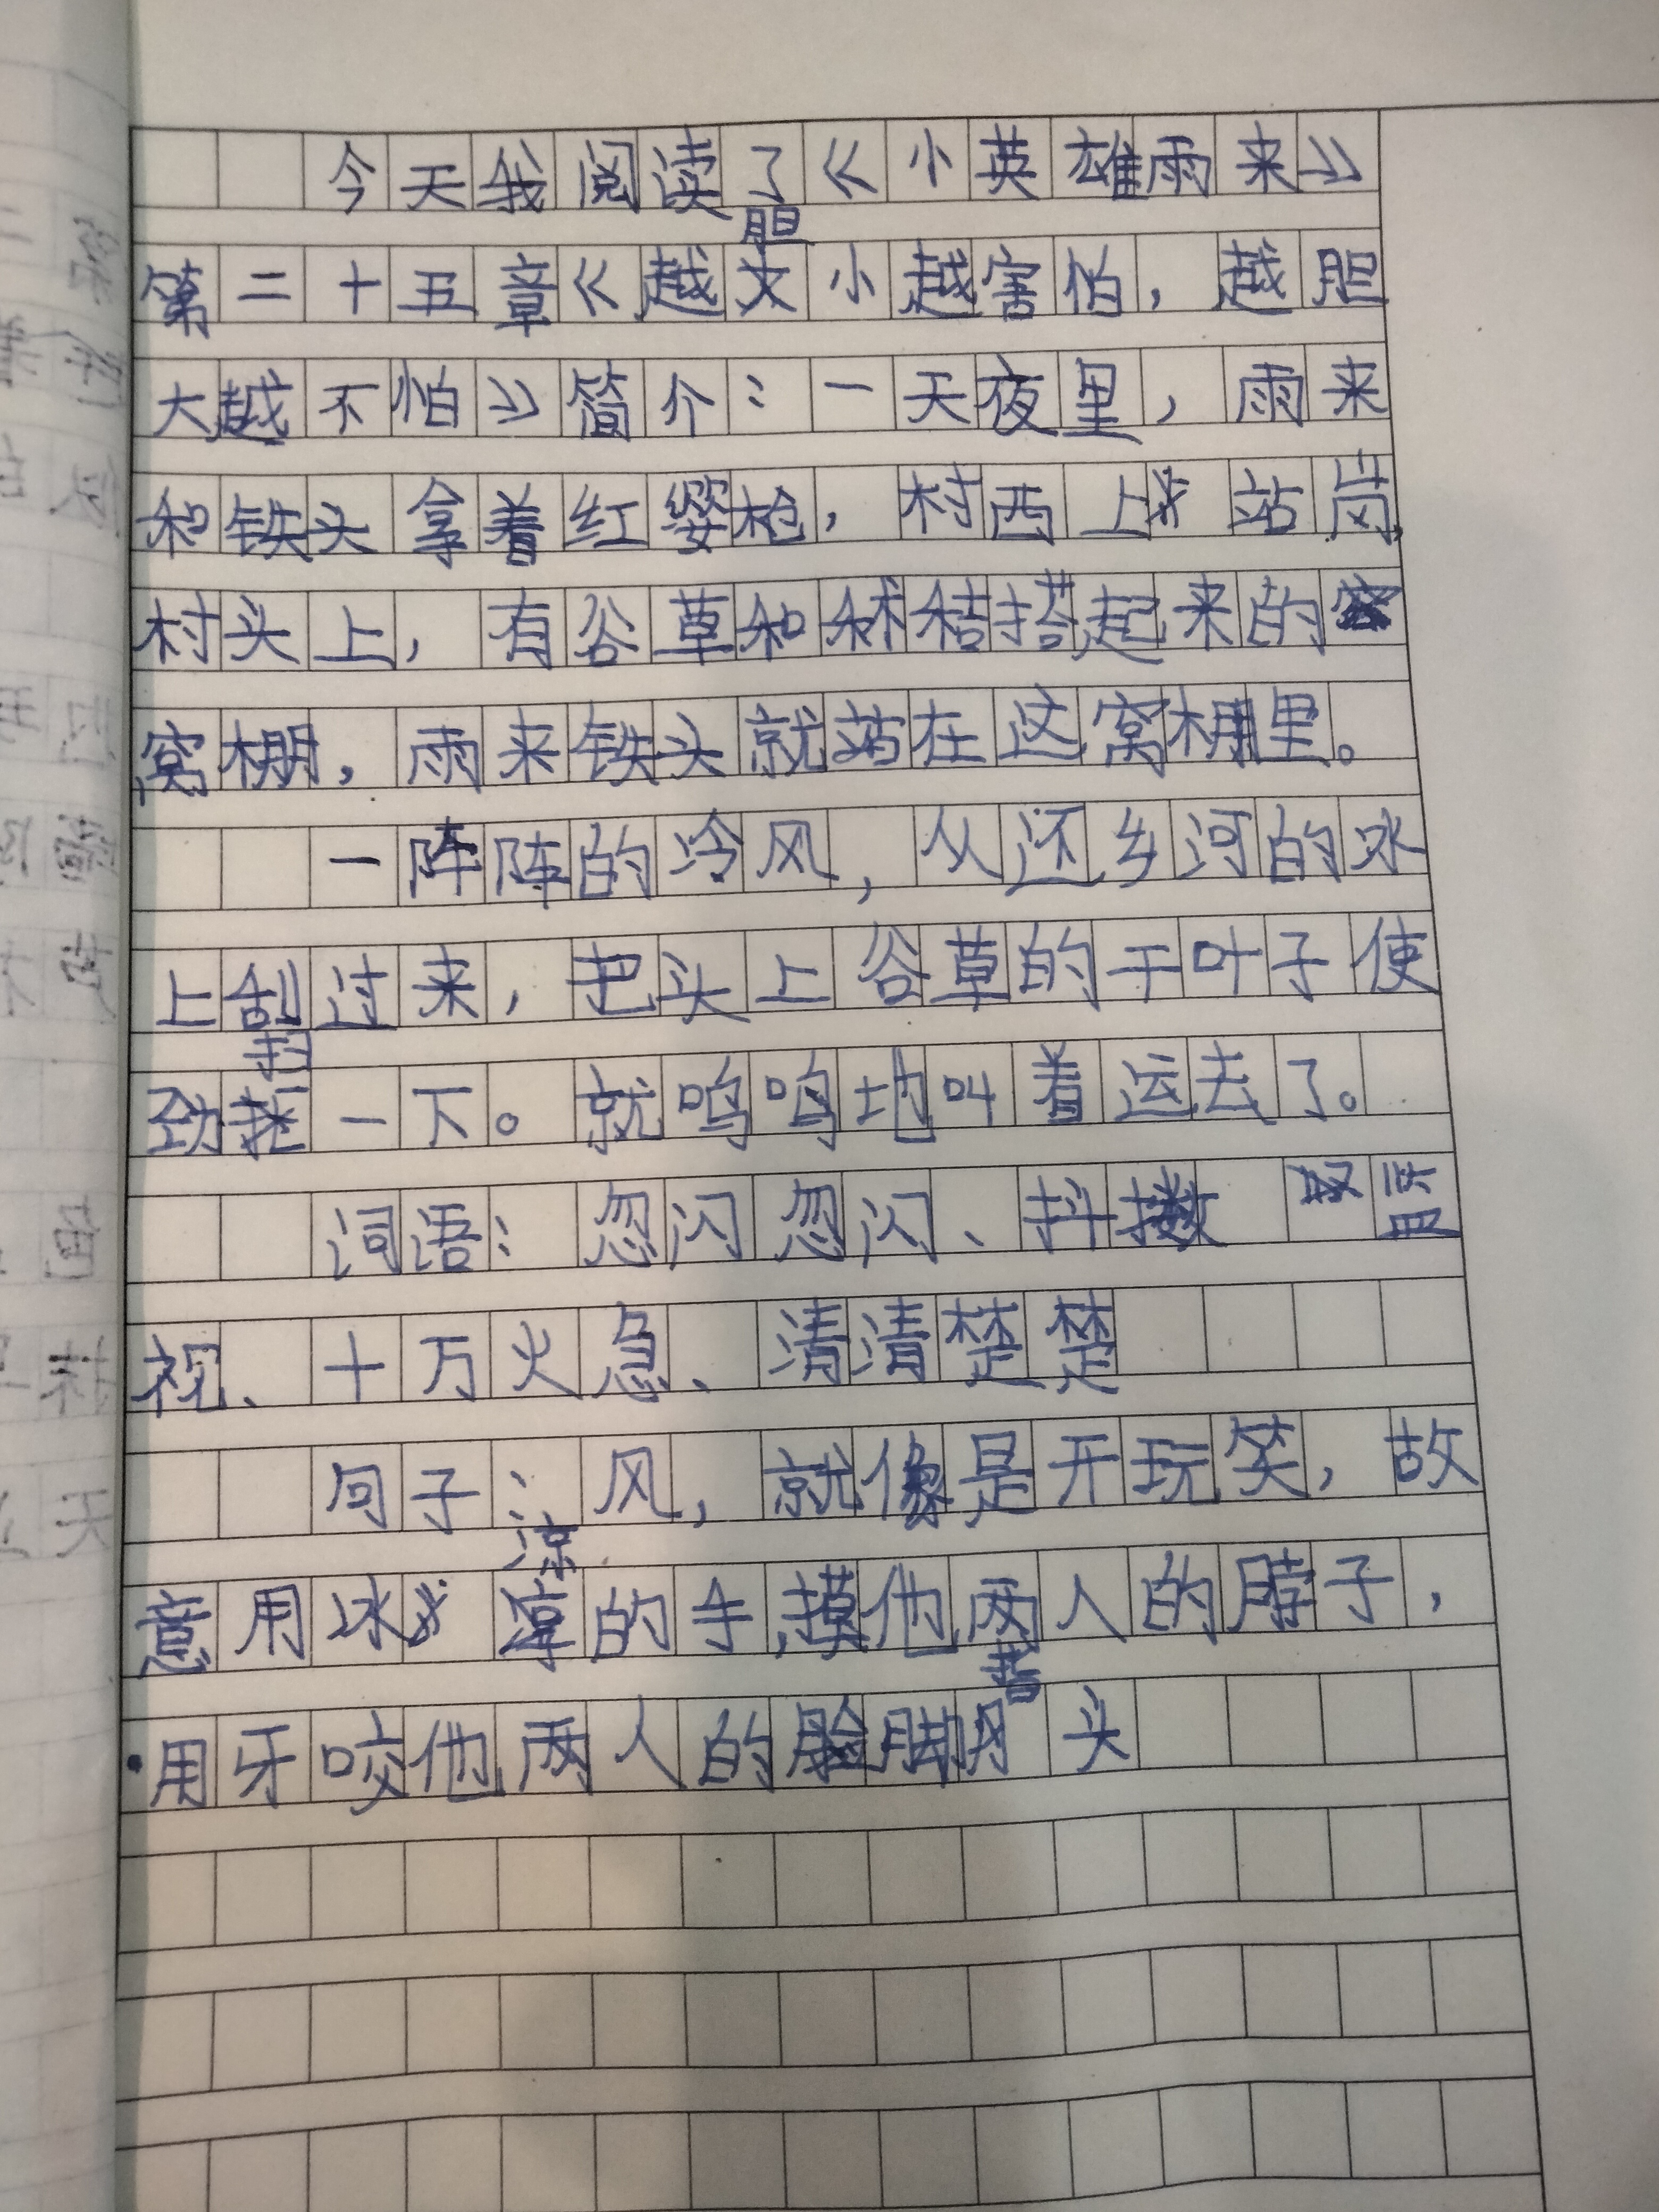 今天我阅读了《小英雄雨来》
第二十五章《越胆小越害怕，越胆
大越不怕》简介：一天夜里，雨来
和铁头拿着红缨枪，村西上站岗，
村头上，有谷草和秫秸搭起来的
窝棚，雨来铁头就站在这窝棚里。
一阵阵的冷风，从还乡河的冰
上刮过来，把头上谷草的干叶子使
劲扫一下。就呜呜地叫着运去了。
词语：忽闪忽闪、抖擞 监
视、十万火急、清清楚楚
句子：风，就像是开玩笑，故
意用冰凉的手，摸他两人的脖子，
用牙咬他两人的脚指头